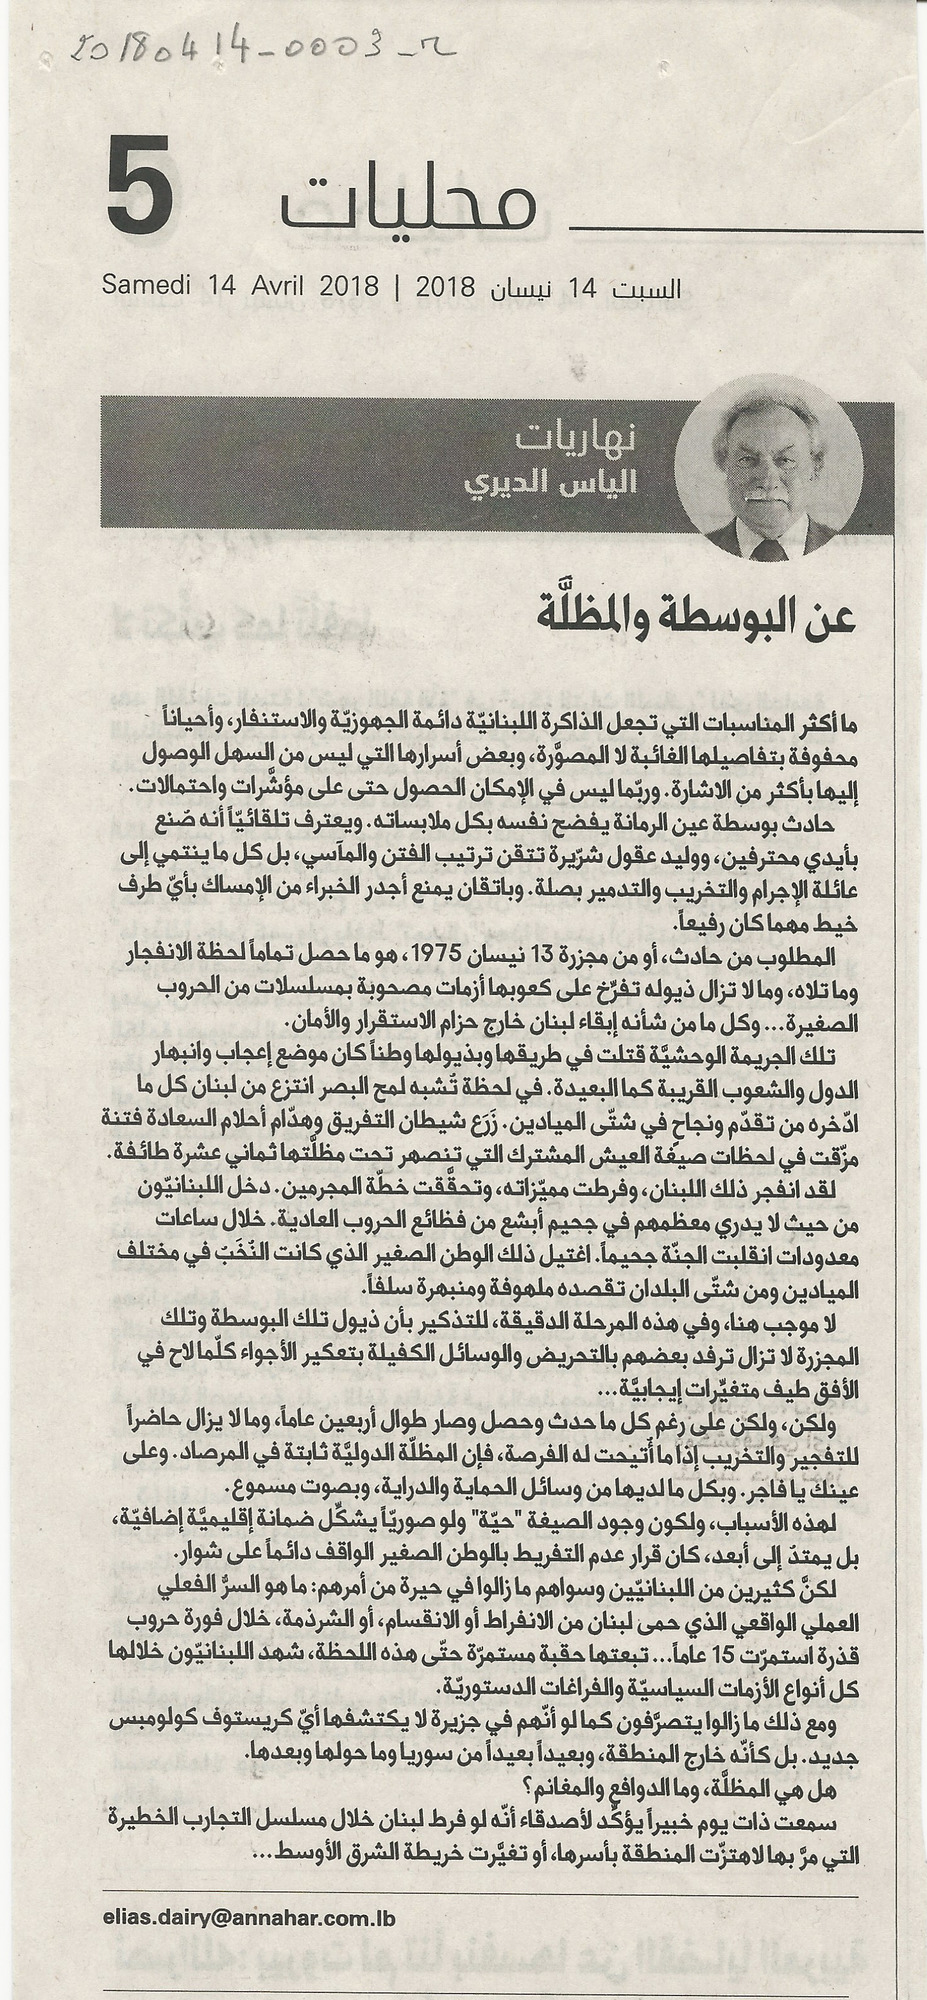 20180414-0003-r
5 محليات
Samedi 14 Avril 2018 | 2018 السبت 14 نيسان
نهاريات
الياس الديري
عن البوسطة والمظلَّة
ما أكثر المناسبات التي تجعل الذاكرة اللبنانيّة دائمة الجهوزيّة والاستنفار، وأحياناً
محفوفة بتفاصيلها الغائبة لا المصوَّرة، وبعض أسرارها التي ليس من السهل الوصول
إليها بأكثر من الاشارة. وربّما ليس في الإمكان الحصول حتى على مؤشّرات واحتمالات.
حادث بوسطة عين الرمانة يفضح نفسه بكل ملابساته. ويعترف تلقائيّاً أنه صُنع
بأيدي محترفين، ووليد عقول شرّيرة تتقن ترتيب الفتن والمآسي، بل كل ما ينتمي إلى
عائلة الإجرام والتخريب والتدمير بصلة. وباتقان يمنع أجدر الخبراء من الإمساك بأيّ طرف
خيط مهما كان رفيعاً.
المطلوب من حادث، أو من مجزرة 13 نيسان 1975، هو ما حصل تماماً لحظة الانفجار
وما تلاه، وما لا تزال ذيوله تفرِّخ على كعوبها أزمات مصحوبة بمسلسلات من الحروب
الصغيرة... وكل ما من شأنه إبقاء لبنان خارج حزام الاستقرار والأمان.
تلك الجريمة الوحشيَّة قتلت في طريقها وبذيولها وطناً كان موضع إعجاب وانبهار
الدول والشعوب القريبة كما البعيدة. في لحظة تُشبه لمح البصر انتزع من لبنان كل ما
ادّخره من تقدّم ونجاح في شتّى الميادين. زَرَع شيطان التفريق وهدّام أحلام السعادة فتنة
مزّقت في لحظات صيغة العيش المشترك التي تنصهر تحت مظلَّتها ثماني عشرة طائفة.
لقد انفجر ذلك اللبنان، وفرطت مميّزاته، وتحقَّقت خطّة المجرمين. دخل اللبنانيّون
من حيث لا يدري معظمهم في جحيم أبشع من فظائع الحروب العادية. خلال ساعات
معدودات انقلبت الجنّة جحيماً. اغتيل ذلك الوطن الصغير الذي كانت النُخَب في مختلف
الميادين ومن شتّى البلدان تقصده ملهوفة ومنبهرة سلفاً.
لا موجب هنا، وفي هذه المرحلة الدقيقة، للتذكير بأن ذيول تلك البوسطة وتلك
المجزرة لا تزال ترفد بعضهم بالتحريض والوسائل الكفيلة بتعكير الأجواء كلّما لاح في
الأفق طيف متغيِّرات إيجابيَّة...
ولكن، ولكن على رغم كل ما حدث وحصل وصار طوال أربعين عاماً، وما لا يزال حاضراً
للتفجير والتخريب إذا ما أُتيحت له الفرصة، فإن المظلّة الدوليَّة ثابتة في المرصاد. وعلى
عينك يا فاجر. وبكل ما لديها من وسائل الحماية والدراية، وبصوت مسموع.
لهذه الأسباب، ولكون وجود الصيغة "حيّة" ولو صوريّاً يشكِّل ضمانة إقليميَّة إضافيّة،
بل يمتدّ إلى أبعد، كان قرار عدم التفريط بالوطن الصغير الواقف دائماً على شوار.
لكنَّ كثيرين من اللبنانيّين وسواهم ما زالوا في حيرة من أمرهم: ما هو السرُّ الفعلي
العملي الواقعي الذي حمى لبنان من الانفراط أو الانقسام، أو الشرذمة، خلال فورة حروب
قذرة استمرّت 15 عاماً... تبعتها حقبة مستمرّة حتّى هذه اللحظة، شهد اللبنانيّون خلالها
كل أنواع الأزمات السياسيّة والفراغات الدستوريّة.
ومع ذلك ما زالوا يتصرَّفون كما لو أنّهم في جزيرة لا يكتشفها أيّ كريستوف كولومبس
جديد. بل كأنّه خارج المنطقة، وبعيداً بعيداً من سوريا وما حولها وبعدها.
هل هي المظلَّة، وما الدوافع والمغانم؟
سمعت ذات يوم خبيراً يؤكِّد لأصدقاء أنّه لو فرط لبنان خلال مسلسل التجارب الخطيرة
التي مرَّ بها لاهتزّت المنطقة بأسرها، أو تغيَّرت خريطة الشرق الأوسط...
elias.dairy@annahar.com.lb